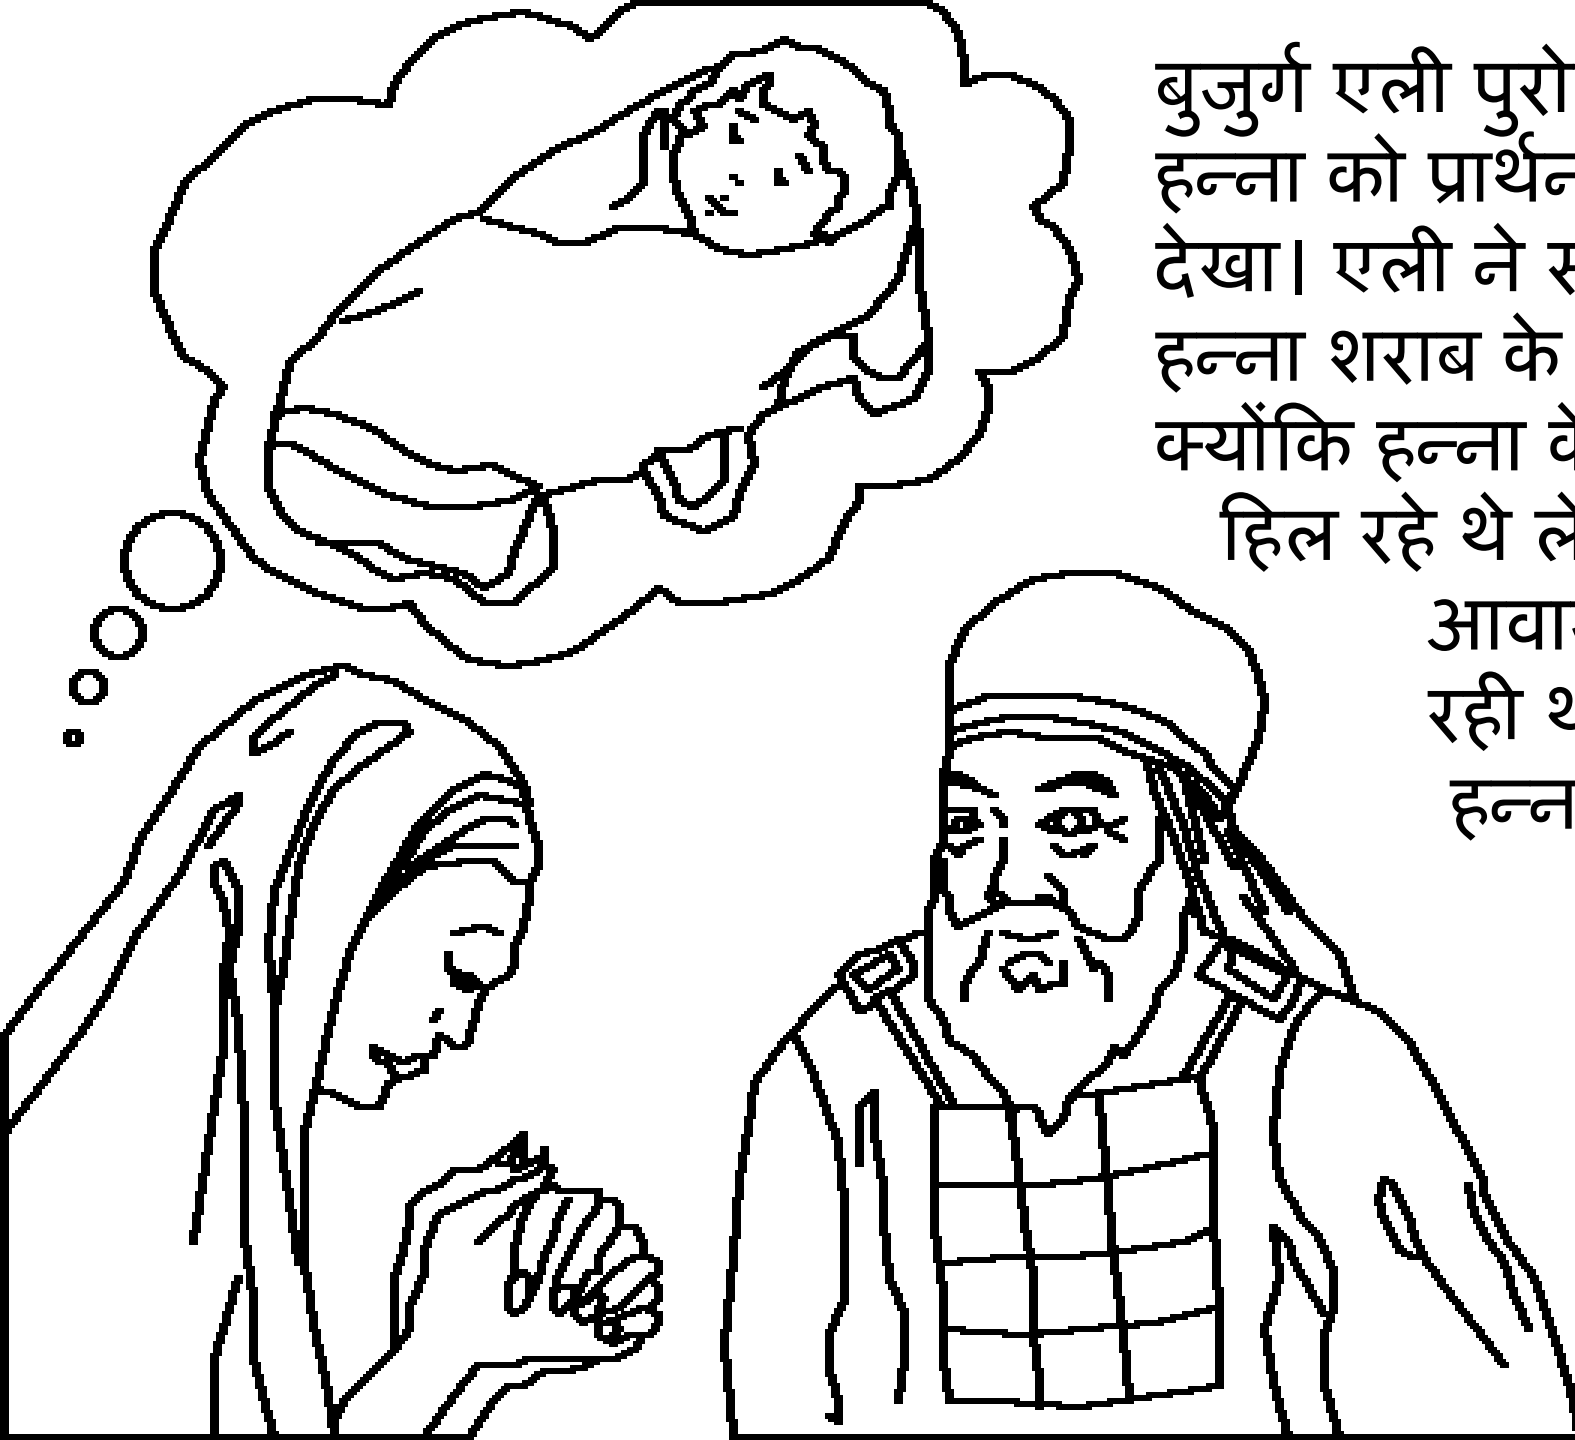 बुजुर्ग एली पुरो
हन्ना को प्रार्थन
देखा। एली ने स
हन्ना शराब के
क्योंकि हन्ना के
हिल रहे थे ले
आवा
रही थ
हन्न